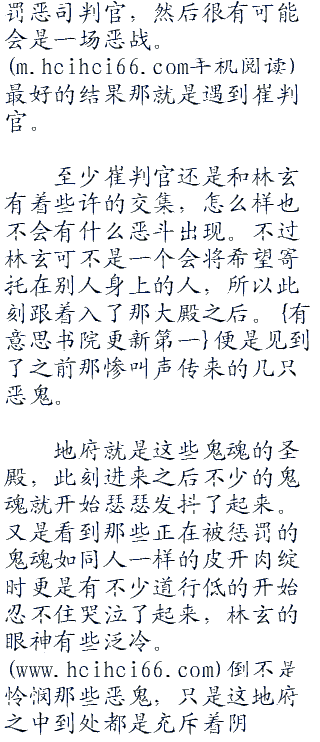 罚恶司判官，然后很有可能
会是一场恶战。
(m.hcihci66.com手机阅读)
最好的结果那就是遇到崔判
官。
至少崔判官还是和林玄
有着些许的交集，怎么样也
不会有什么恶斗出现。不过
林玄可不是一个会将希望寄
托在别人身上的人，所以此
刻跟着入了那大殿之后。{有
意思书院更新第一}便是见到
了之前那惨叫声传来的几只
恶鬼。
地府就是这些鬼魂的圣
殿，此刻进来之后不少的鬼
魂就开始瑟瑟发抖了起来。
又是看到那些正在被惩罚的
鬼魂如同人一样的皮开肉绽
时更是有不少道行低的开始
忍不住哭泣了起来，林玄的
眼神有些泛冷。
(www.hcihci66.com)倒不是
怜悯那些恶鬼，只是这地府
之中到处都是充斥着阴